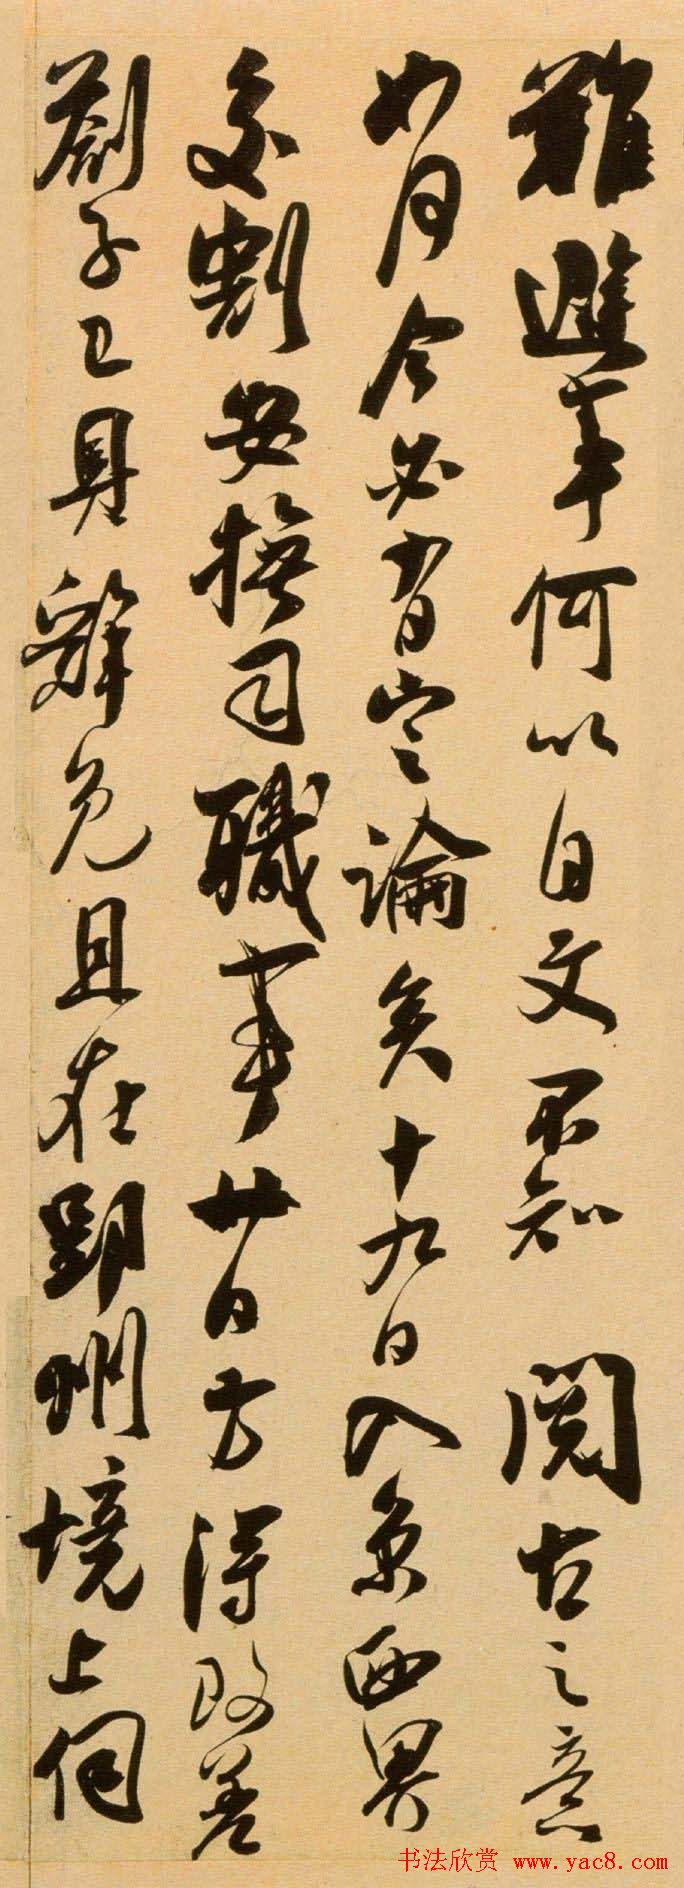 難進事何以自文不知 閱古之意
如何今必有定論矣十九日入京西界
交割安撫司職事廿日方得改差
劄子已具辭免且在郢州境上伺
书法欣赏 www.yac8.com